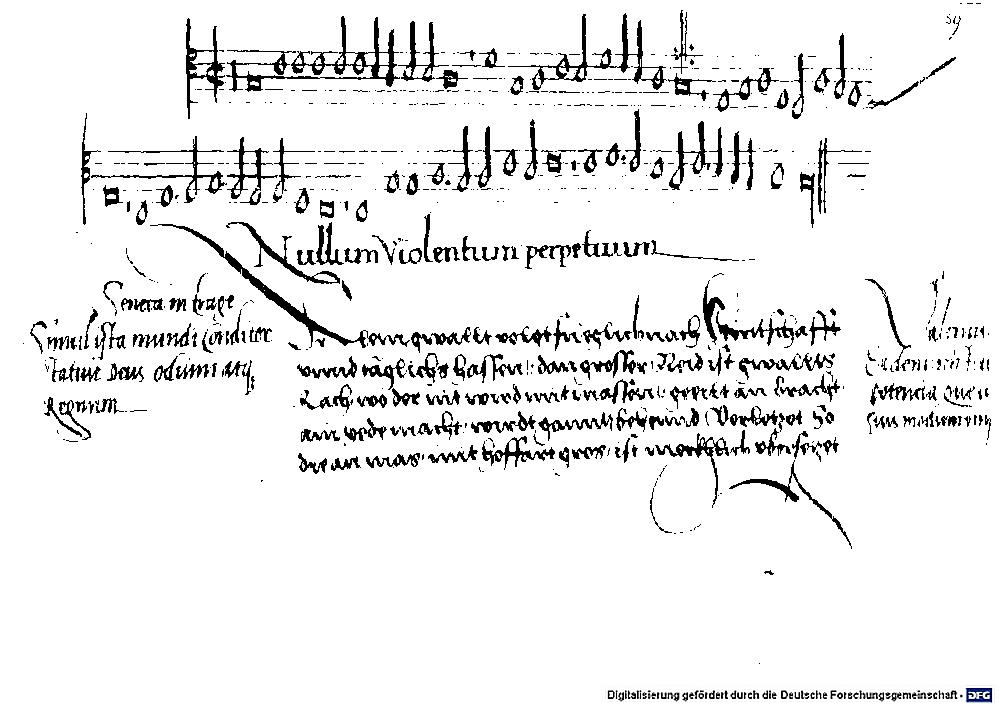 59
Nullum violentum perpetuum
Seneca in trage
Simul ista mundi conditor
statuit Deus odium atq
Regnum
gwallt volgt füeglich nach Herrtschafft
vnnd täglichs hassen: dan grosser Neid ist gwallts
Rach wo der nit wird mit massen gfuert an bracht
ain yede macht wirdt ganntz behennd Verletzet So
die an mas mit hoffart gros ist mercklich vbersetzet
potencia que
Digitalisierung gefördert durch die Deutsche Forschungsgemeinschaft - DFG